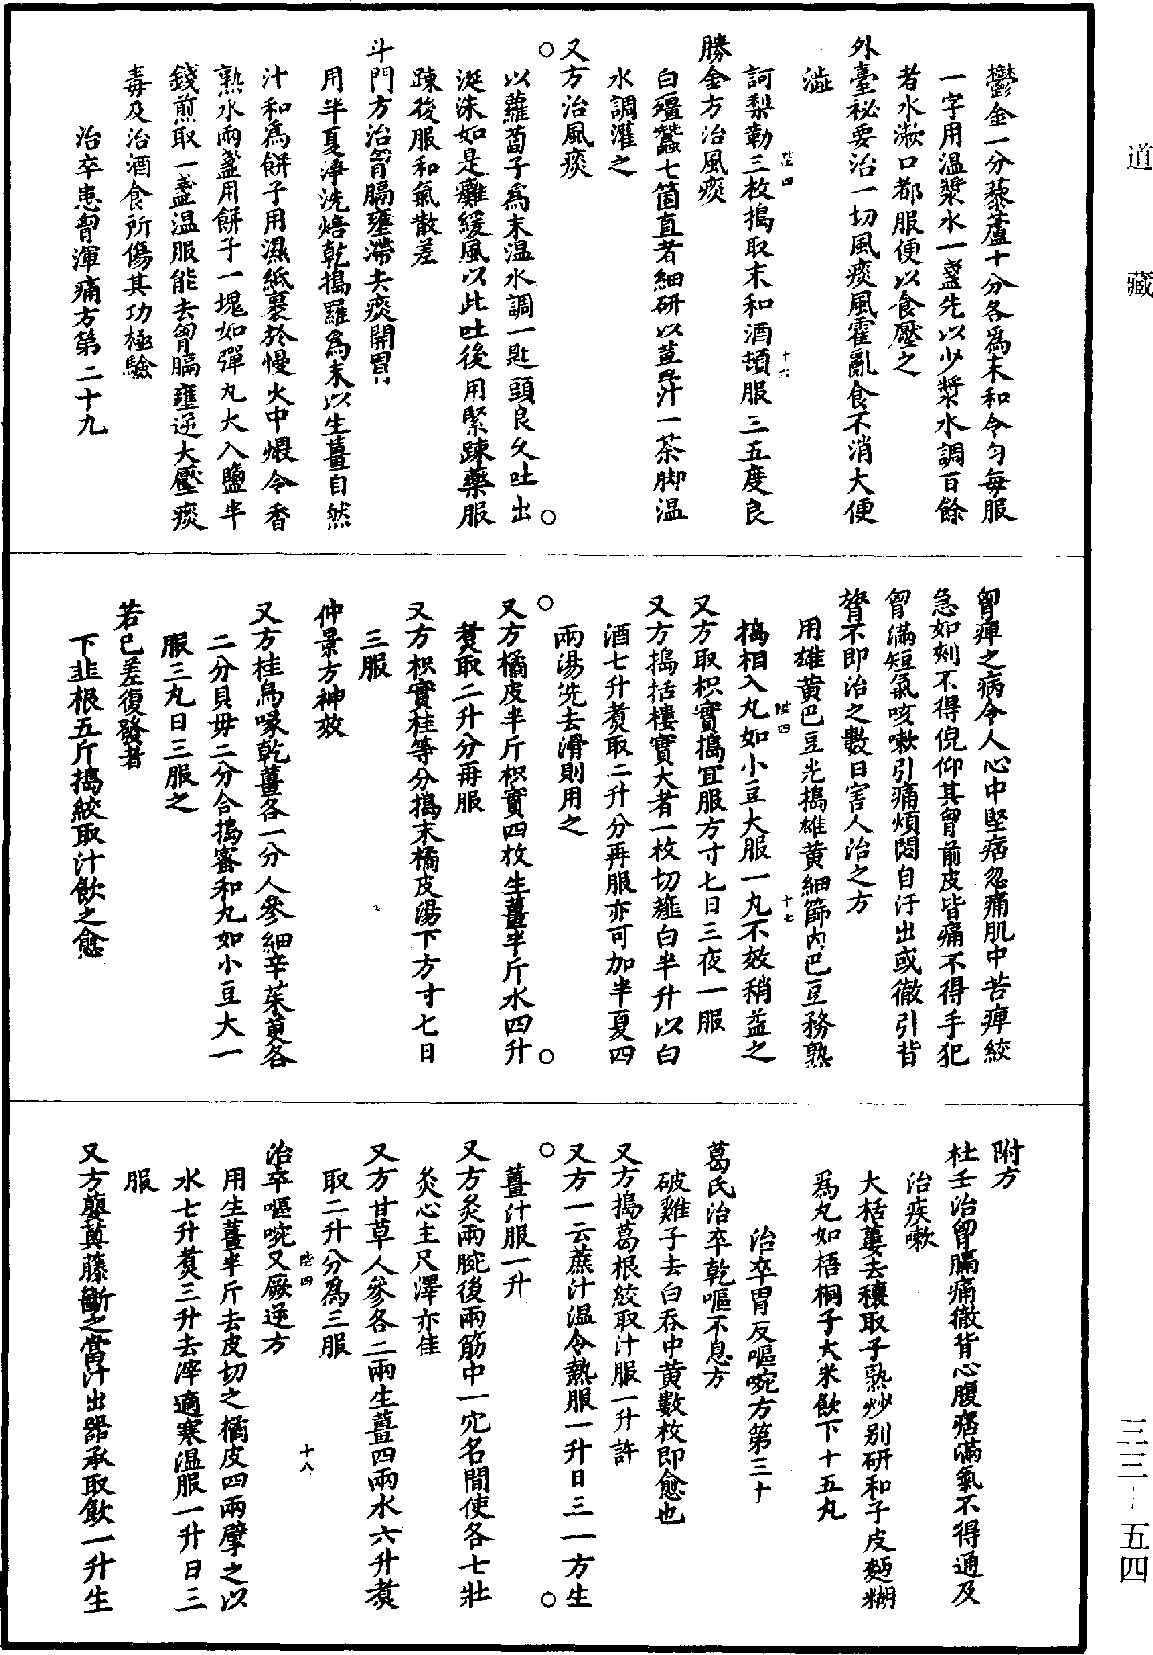 道藏
鬱金一分藜蘆十分各爲末和令勻每服
一字用温漿水一盞先以少漿水調下餘
者水漱口都服便以食壓之
外臺祕要治一切風痰風霍亂食不消大便
澁
訶梨勒三枚搗取末和酒頓服三五度良
勝金方治風痰
白殭蠶七箇直者細研以薑汁一茶脚温
水調灌之
又方治風痰
以蘿蔔子爲末温水調一匙頭良久吐出
涎沫如是癱緩風以此吐後用緊踈藥服
踈後服和氣散差
斗門方治胷膈壅滯去痰開胃
用半夏淨洗焙乾搗羅爲末以生薑自然
汁和爲餅子用濕紙裹於慢火中煨令香
熟水兩盞用餅子一塊如彈丸大入鹽半
錢煎取一盞温服能去胷膈壅逆大壓痰
毒及治酒食所傷其功極驗
治卒患胷痺痛方第二十九
胷痺之病令人心中堅痞忽痛肌中苦痺絞
急如刺不得俛仰其胷前皮皆痛不得手犯
胷滿短氣咳嗽引痛煩悶自汗出或徹引背
膂不即治之數日害人治之方
用雄黄巴豆先搗雄黄細篩内巴豆務熟
搗相入丸如小豆大服一丸不效稍益之
又方取枳實搗宜服方寸匕日三夜一服
又方搗栝樓實大者一枚切薤白半升以白
酒七升煮取二升分再服亦可加半夏四
兩湯洗去滑則用之
又方橘皮半斤枳實四枚生薑半斤水四升
煮取二升分再服
又方枳實桂等分搗末橘皮湯下方寸匕日
三服
仲景方神效
又方桂烏喙乾薑各一分人參細辛茱萸各
二分貝毋二分合搗蜜和丸如小豆大一
服三丸日三服之
若已差復發者
下韭根五斤搗絞取汁飲之愈
附方
杜壬治胷膈痛徹背心腹痞滿氣不得通及
治痰嗽
大栝蔞去穰取子熟炒别研和子皮麵糊
爲丸如梧桐子大米飲下十五丸
治卒胃反嘔啘方第三十
葛氏治卒乾嘔不息方
破雞子去白吞中黄數枚即愈也
又方搗葛根絞取汁服一升許
又方一云蔗汁温令熱服一升日三一方生
薑汁服一升
又方灸兩腕後兩筋中一穴名間使各七壯
灸心主尺澤亦佳
又方甘草人參各二兩生薑四兩水六升煮
取二升分爲三服
治卒嘔啘又厥逆方
用生薑半斤去皮切之橘皮四兩擘之以
水七升煮三升去滓適寒温服一升日三
服
又方蘡薁藤斷之當汁出器承取飲一升生
陸四
十六
陸四
十七
陸四
十八
三三—五四